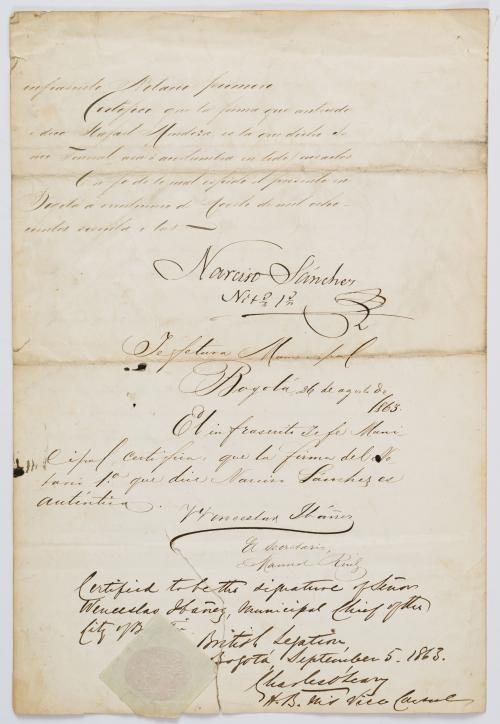 infrascrito Notario primero
Certifico: que la firma que antecede
i dice Rafael Mendoza, es la que dicho
acostumbra en todos
En fe de lo cual espido el presente en
Bogotá a de Agosto de mil ocho-
cientos sesenta i tres —
Narciso Sánchez
Noto. 1o.
Jefatura Municipal
Bogotá, 26 de agosto de
1863.
El infrascrito Jefe Muni
cipal certifica: que la firma del No
tario 1.o que dice Narciso Sanchez es
auténtica.
Wenceslao Ibáñez
El Secretario,
Manuel Ruiz
Certified to be the signature of Señor
Wenceslao Ibañez, Municipal Chief of the
City of
British Legation
Bogotá September 5. 1863.
Charles O'Leary
H.B.M's Vice Consul